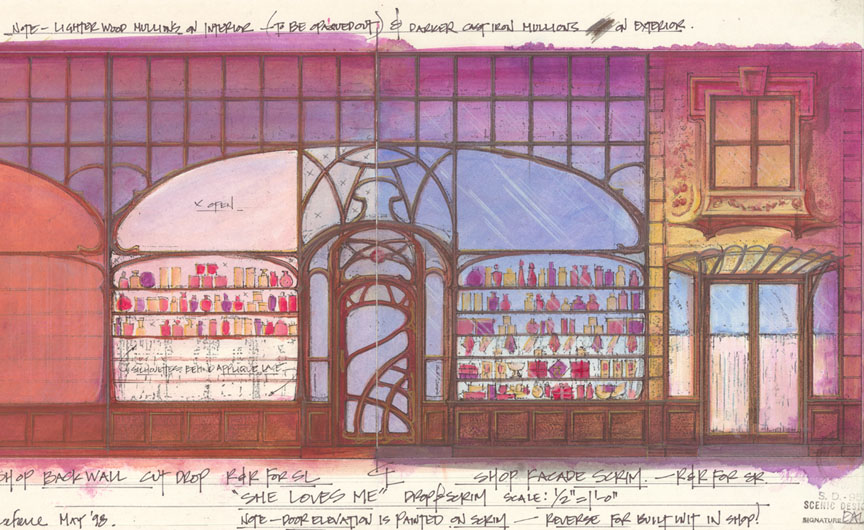 NOTE - LIGHTER WOOD MULLIONS ON INTERIOR (TO BE OPAQUED OUT) & DARKER CAST IRON MULLIONS ON EXTERIOR.
X OPEN
SILHOUETTES BEHIND APPLIQUE
SHOP BACK WALL CUT DROP R&R FOR SL
SHOP FACADE SCRIM. - R&R FOR SR
"SHE LOVES ME" DROP & SCRIM SCALE: 1/2" = 1'-0"
MAY '98.
NOTE - DOOR ELEVATION IS PAINTED ON SCRIM - REVERSE FOR BUILT UNIT IN SHOP!
SCENIC DES
SIGNATURE